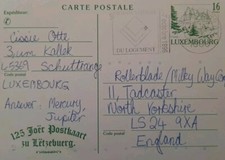 CARTE POSTALE
Expéditeur:
Cissie Otte
3, um Kallek
L-5369 Schuttrange
LUXEMBOURG
Answer: Mercury,
Jupiter
125 Joër Postkaart
zu Lëtzebuerg.
DU LOGEMENT
16
LUXEMBOURG
Rollerblade/Milky Way
11, Tadcaster
North Yorkshire
LS24 9XA
England